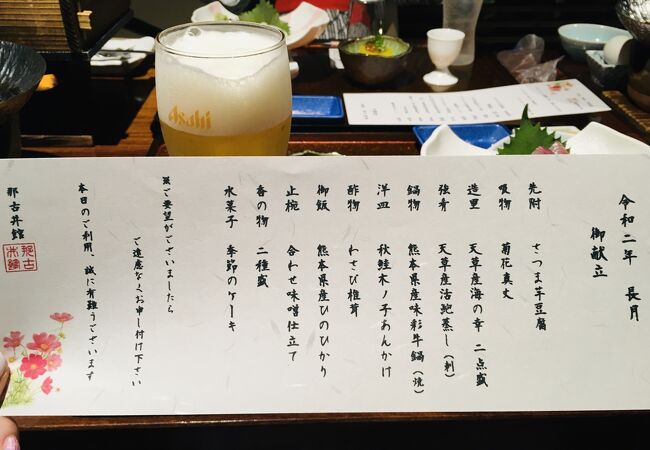 令和二年 長月
御献立
先附 さつま芋豆腐
吸物 菊花真丈
造里 天草産海の幸 二点盛
強肴 天草産活鮑蒸し(刺)
鍋物 熊本県産味彩牛鍋(焼)
洋皿 秋鮭木ノ子あんかけ
酢物 わさび椎茸
御飯 熊本県産ひのひかり
止椀 合わせ味噌仕立て
香の物 二種盛
水菓子 季節のケーキ
※ご要望がございましたら
ご遠慮なくお申し付け下さい
本日のご利用、誠に有難うございます
那古井館
Asahi